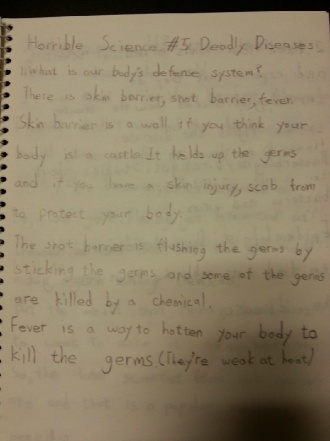 Horrible Science #5 Deadly Diseases
1. What is our body's defense system?
There is skin barrier, snot barrier, fever.
Skin barrier is a wall if you think your
body is a castle. It holds up the germs
and if you have a skin injury, scab from
to protect your body.
The snot barrier is flushing the germs by
sticking the germs and some of the germs
are killed by a chemical.
Fever is a way to hotten your body to
kill the germs. (They're weak at heat)